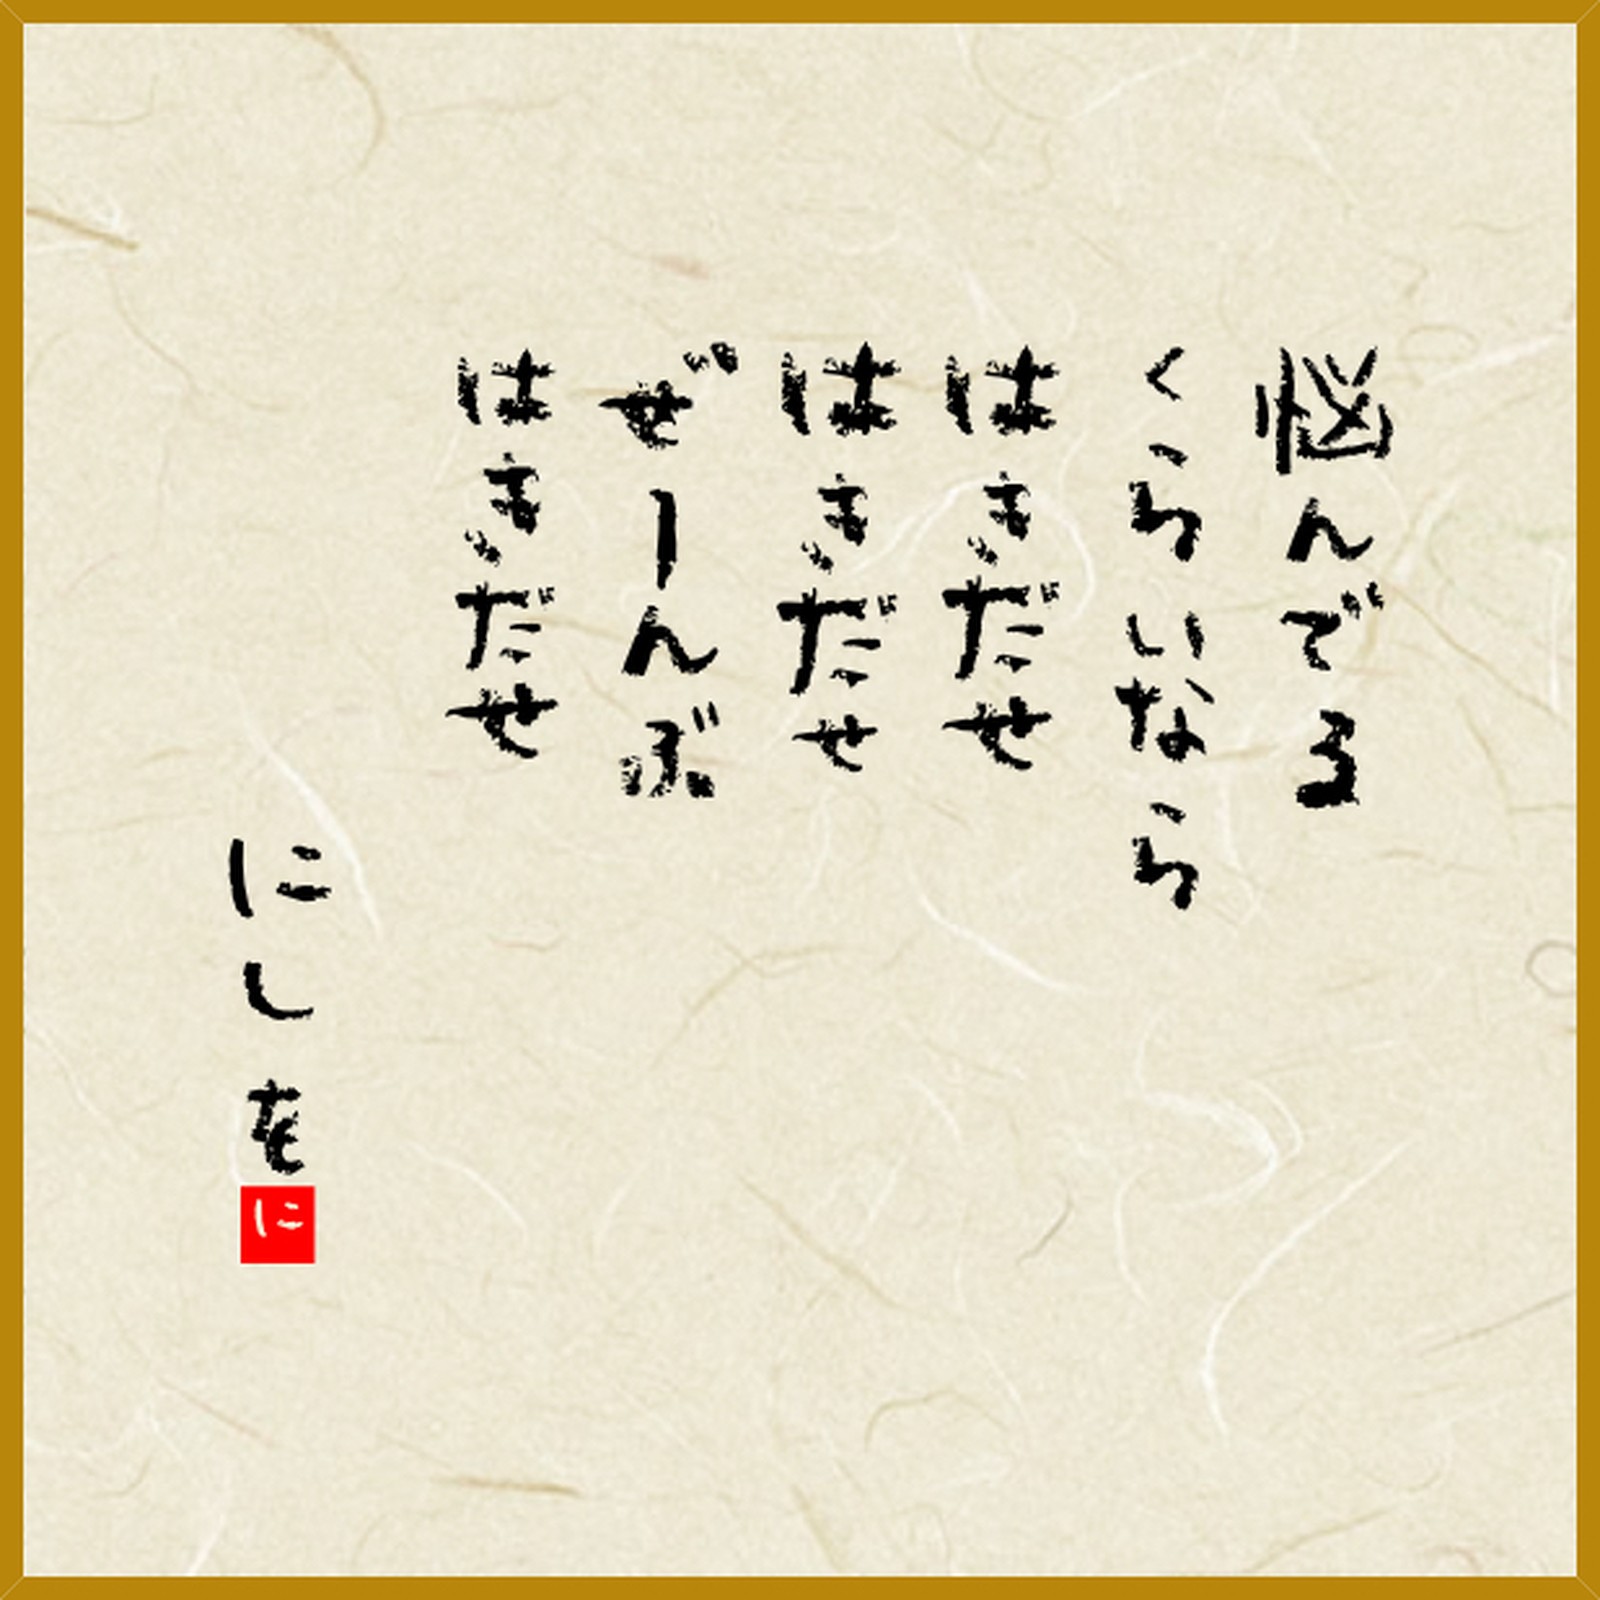 悩んでる
くらいなら
はきだせ
はきだせ
ぜーんぶ
はきだせ
にしを
に